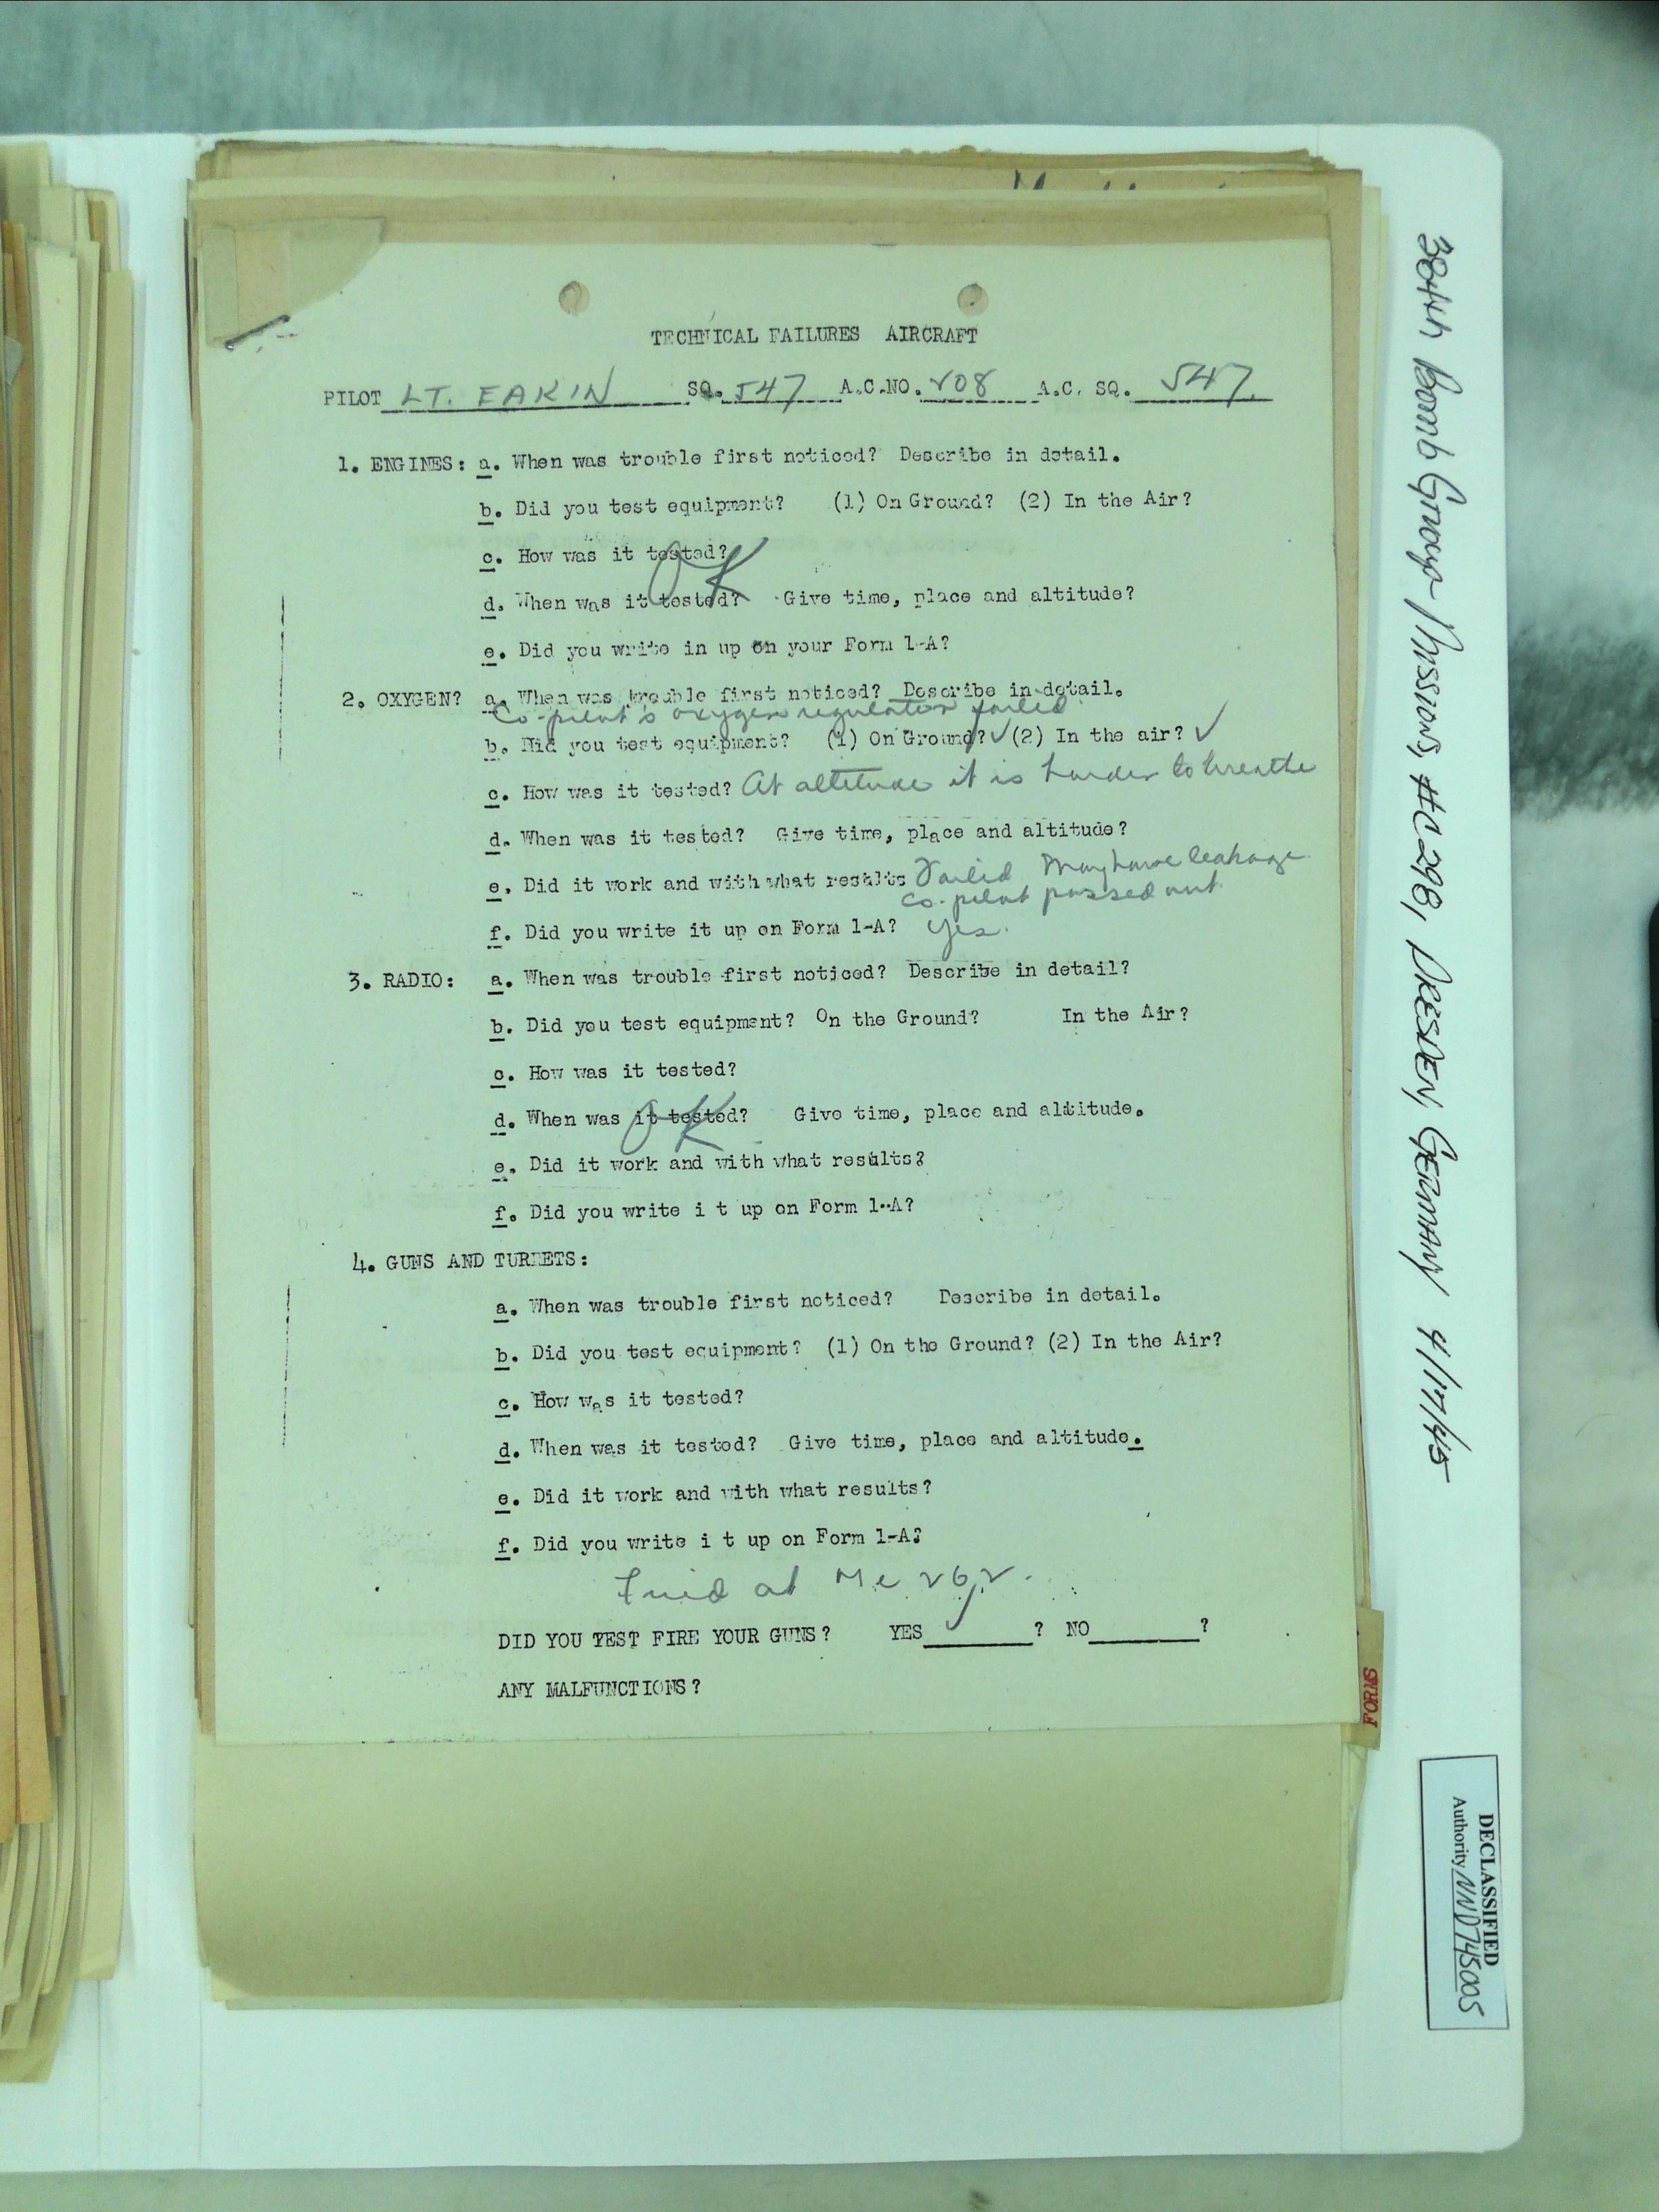 TECHNICAL FAILURES AIRCRAFT
PILOT LT. EAKIN SQ. 547 A.C.NO. 208 A.C. SQ. 547.
1. ENGINES: a. When was trouble first noticed? Describe in detail.
b. Did you test equipment? (1) On Ground? (2) In the Air?
c. How was it tested?
OK
d. When was it tested? Give time, place and altitude?
e. Did you write in up on your Form 1-A?
2. OXYGEN? a. When was trouble first noticed? Describe in detail.
Co-pilot's oxygen regulator failed.
b. Did you test equipment? (1) On Ground? ✓ (2) In the air? ✓
c. How was it tested? At altitude it is harder to breathe
d. When was it tested? Give time, place and altitude?
e. Did it work and with what results Failed May have leakage
co-pilot passed out.
f. Did you write it up on Form 1-A? Yes.
3. RADIO: a. When was trouble first noticed? Describe in detail?
b. Did you test equipment? On the Ground? In the Air?
c. How was it tested?
d. When was it tested? Give time, place and altitude.
OK
e. Did it work and with what results?
f. Did you write i t up on Form 1-A?
4. GUNS AND TURRETS:
a. When was trouble first noticed? Describe in detail.
b. Did you test equipment? (1) On the Ground? (2) In the Air?
c. How was it tested?
d. When was it tested? Give time, place and altitude.
e. Did it work and with what results?
f. Did you write i t up on Form 1-A?
Fired at Me 262.
DID YOU TEST FIRE YOUR GUNS? YES ✓ ? NO ?
ANY MALFUNCTIONS?
FORMS
384th Bomb Group Missions, #C298, DRESDEN, GERMANY 4/17/45
DECLASSIFIED
Authority NND745005